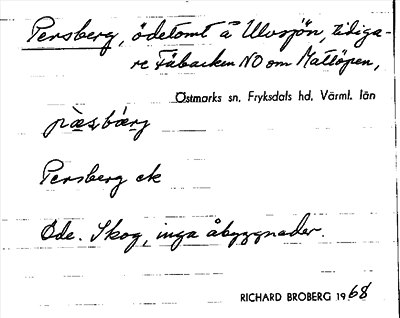 Persberg, ödetomt å Ulvsjön, tidiga-
re Fäbacken NO om Mattöpen,
Östmarks sn, Fryksdals hd, Värml. län
pæ̀s̠bæ̠rg
Persberg ek
Öde. Skog, inga åbyggnader.
RICHARD BROBERG 1968